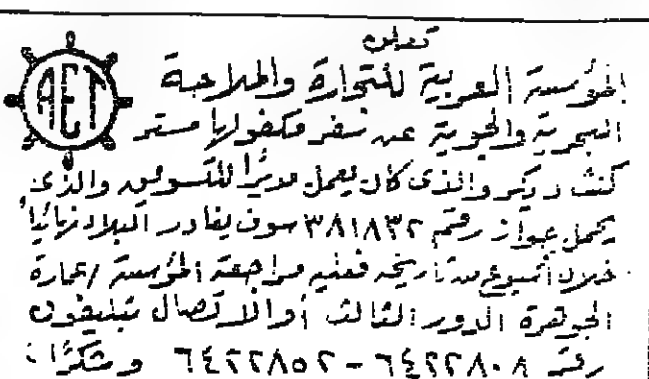 تعلن
AET
المؤسسة العربية للتجارة والملاحة
البحرية والجوية عن سفر مكفولها مستر
كنث ديكر والذى كان يعمل مديرًا للتسويق والذى
يحمل جواز رقم ٣٨١٨٣٢ سوف يغادر البلاد نهائيًا
خلال أسبوع من تاريخه فعليه مراجعة المؤسسة / عمارة
الجوهرة الدور الثالث أو الاتصال بتليفون
رقم ٦٤٢٢٨٠٨ - ٦٤٢٢٨٥٢ وشكرًا :